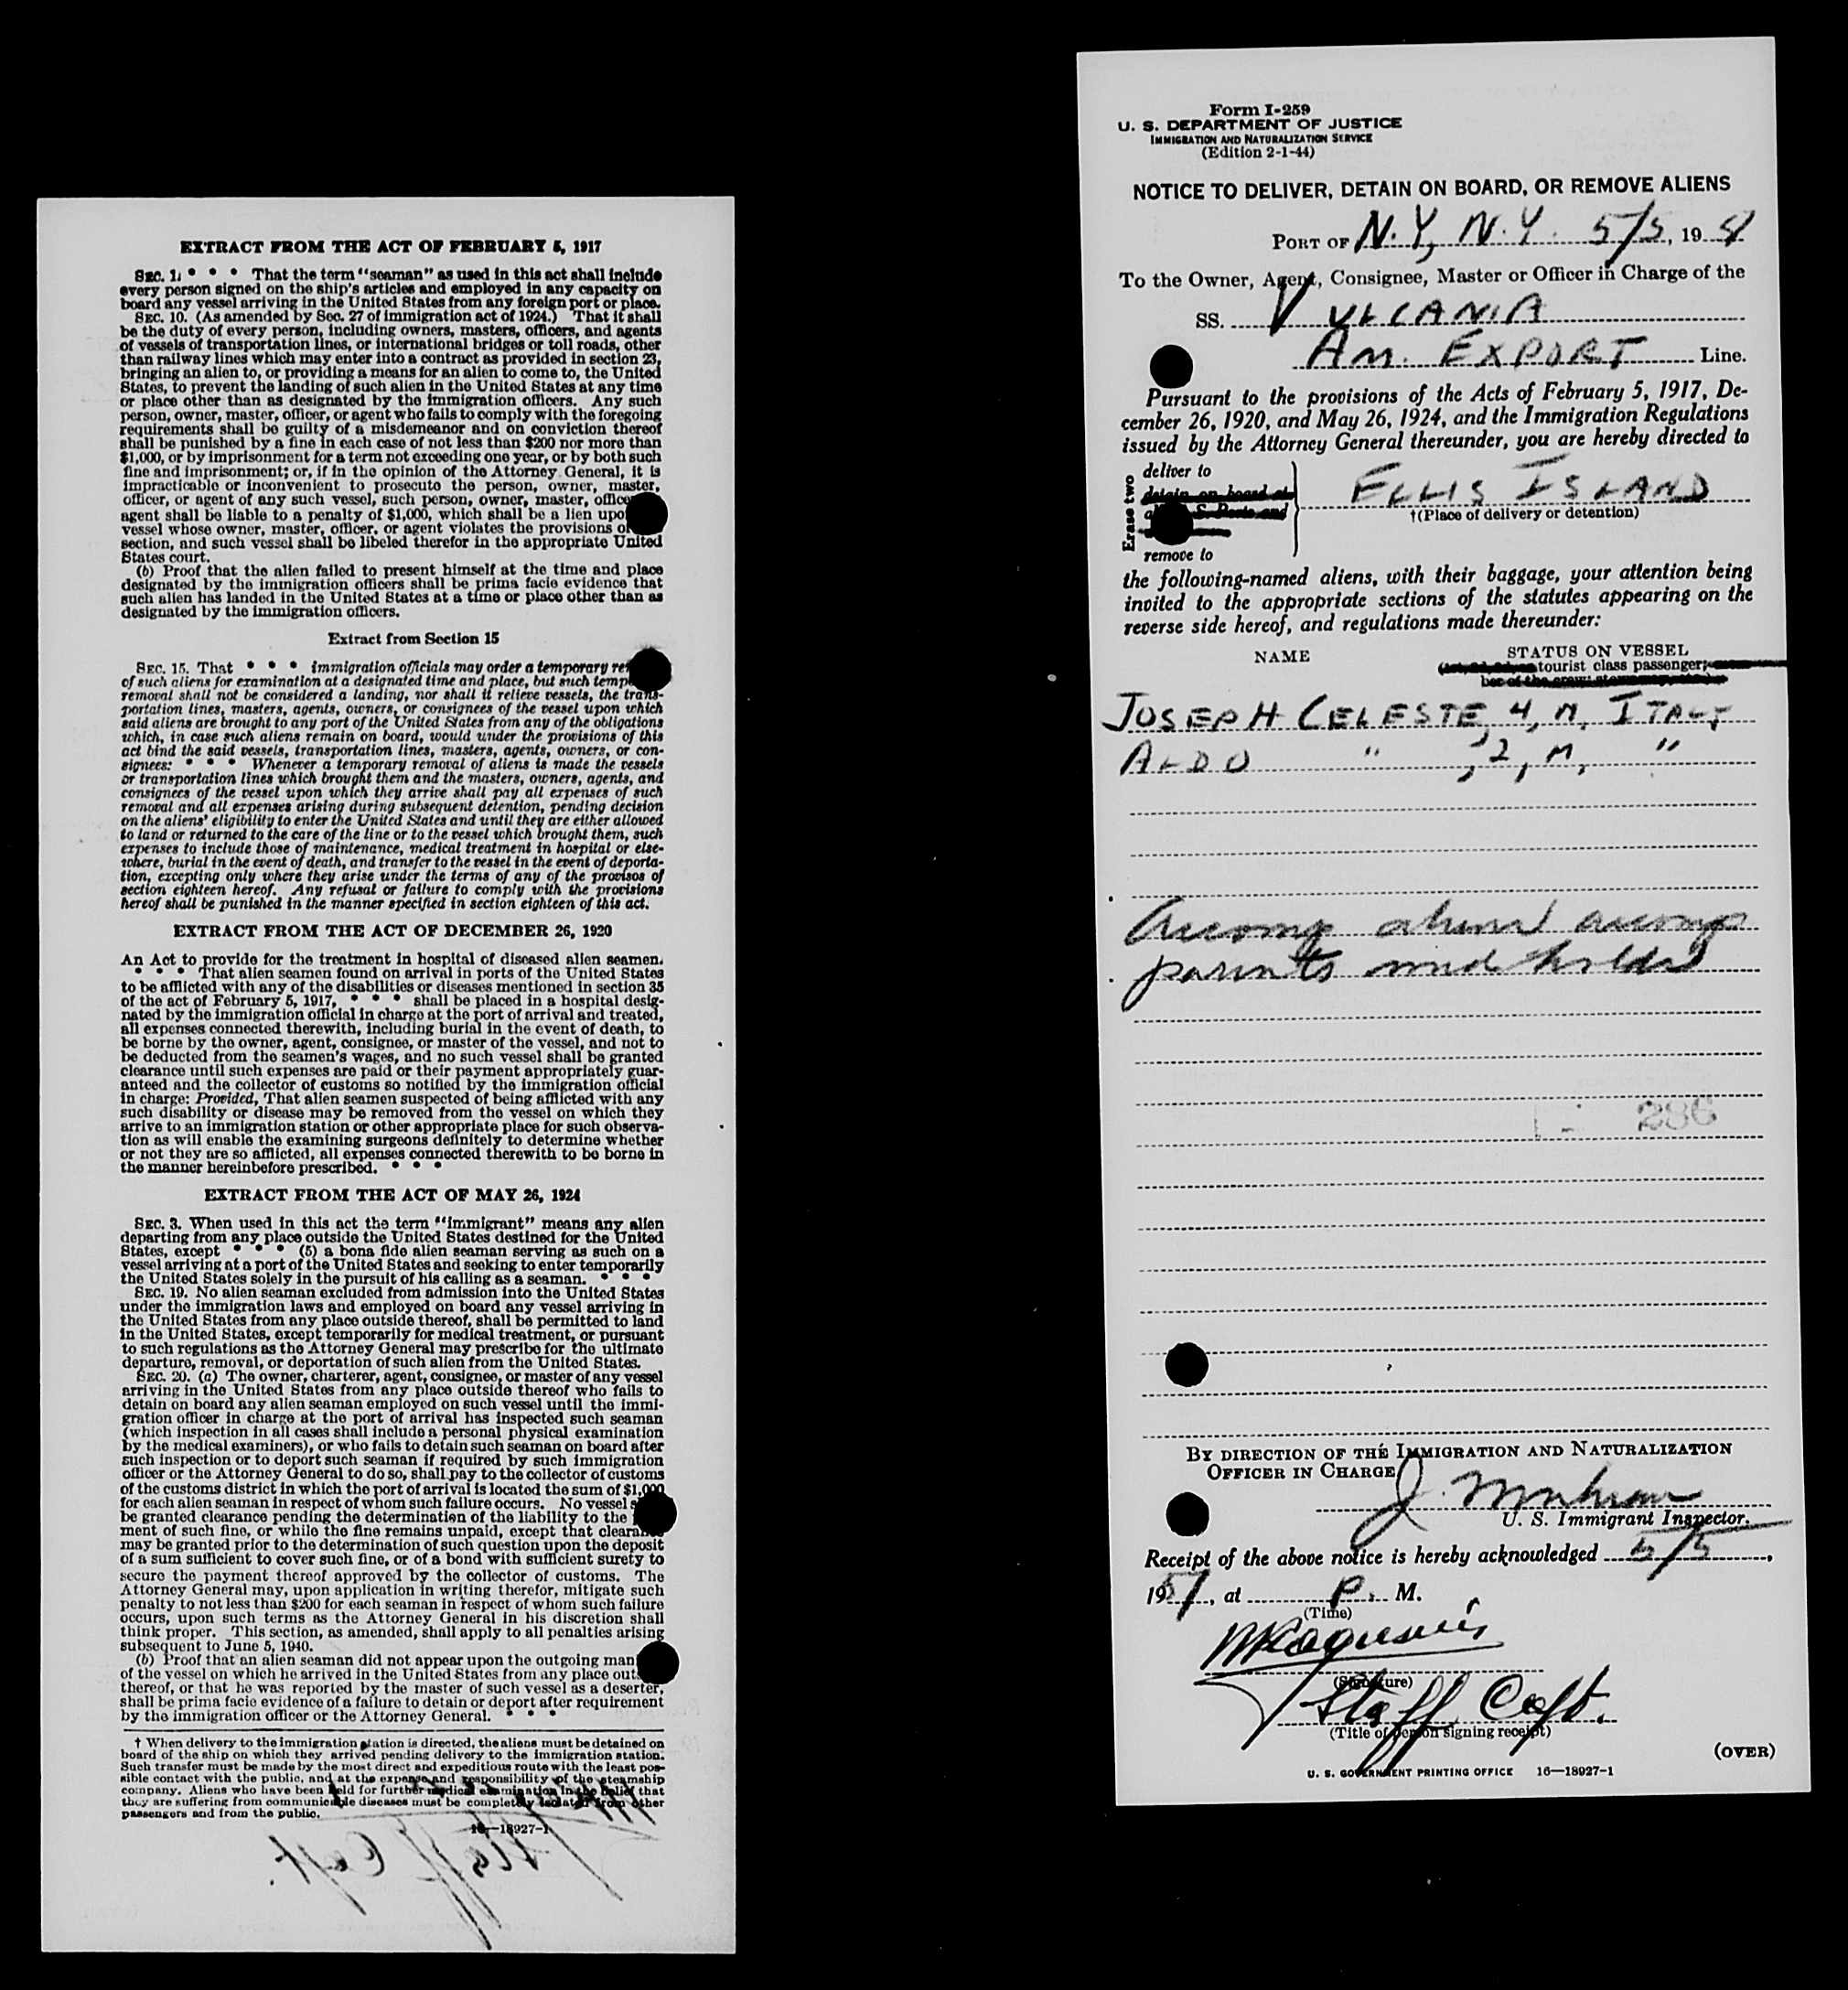 EXTRACT FROM THE ACT OF FEBRUARY 5, 1917
SEC. 1. * * * That the term "seaman" as used in this act shall include
every person signed on the ship's articles and employed in any capacity on
board any vessel arriving in the United States from any foreign port or place.
SEC. 10. (As amended by Sec. 27 of immigration act of 1924.) That it shall
be the duty of every person, including owners, masters, officers, and agents
of vessels of transportation lines, or international bridges or toll roads, other
than railway lines which may enter into a contract as provided in section 23,
bringing an alien to, or providing a means for an alien to come to, the United
States, to prevent the landing of such alien in the United States at any time
or place other than as designated by the immigration officers. Any such
person, owner, master, officer, or agent who fails to comply with the foregoing
requirements shall be guilty of a misdemeanor and on conviction thereof
shall be punished by a fine in each case of not less than $200 nor more than
$1,000, or by imprisonment for a term not exceeding one year, or by both such
fine and imprisonment; or, if in the opinion of the Attorney General, it is
impracticable or inconvenient to prosecute the person, owner, master,
officer, or agent of any such vessel, such person, owner, master, office
agent shall be liable to a penalty of $1,000, which shall be a lien upo
vessel whose owner, master, officer, or agent violates the provisions o
section, and such vessel shall be libeled therefor in the appropriate United
States court.
(b) Proof that the alien failed to present himself at the time and place
designated by the immigration officers shall be prima facie evidence that
such alien has landed in the United States at a time or place other than as
designated by the immigration officers.
Extract from Section 15
SEC. 15. That * * * immigration officials may order a temporary re
of such aliens for examination at a designated time and place, but such temp
removal shall not be considered a landing, nor shall it relieve vessels, the trans-
portation lines, masters, agents, owners, or consignees of the vessel upon which
said aliens are brought to any port of the United States from any of the obligations
which, in case such aliens remain on board, would under the provisions of this
act bind the said vessels, transportation lines, masters, agents, owners, or con-
signees: * * * Whenever a temporary removal of aliens is made the vessels
or transportation lines which brought them and the masters, owners, agents, and
consignees of the vessel upon which they arrive shall pay all expenses of such
removal and all expenses arising during subsequent detention, pending decision
on the aliens' eligibility to enter the United States and until they are either allowed
to land or returned to the care of the line or to the vessel which brought them, such
expenses to include those of maintenance, medical treatment in hospital or else-
where, burial in the event of death, and transfer to the vessel in the event of deporta-
tion, excepting only where they arise under the terms of any of the provisos of
section eighteen hereof. Any refusal or failure to comply with the provisions
hereof shall be punished in the manner specified in section eighteen of this act.
EXTRACT FROM THE ACT OF DECEMBER 26, 1920
An Act to provide for the treatment in hospital of diseased alien seamen.
* * * That alien seamen found on arrival in ports of the United States
to be afflicted with any of the disabilities or diseases mentioned in section 35
of the act of February 5, 1917, * * * shall be placed in a hospital desig-
nated by the immigration official in charge at the port of arrival and treated,
all expenses connected therewith, including burial in the event of death, to
be borne by the owner, agent, consignee, or master of the vessel, and not to
be deducted from the seamen's wages, and no such vessel shall be granted
clearance until such expenses are paid or their payment appropriately guar-
anteed and the collector of customs so notified by the immigration official
in charge: Provided, That alien seamen suspected of being afflicted with any
such disability or disease may be removed from the vessel on which they
arrive to an immigration station or other appropriate place for such observa-
tion as will enable the examining surgeons definitely to determine whether
or not they are so afflicted, all expenses connected therewith to be borne in
the manner hereinbefore prescribed. * * *
EXTRACT FROM THE ACT OF MAY 26, 1924
SEC. 3. When used in this act the term "immigrant" means any alien
departing from any place outside the United States destined for the United
States, except * * * (5) a bona fide alien seaman serving as such on a
vessel arriving at a port of the United States and seeking to enter temporarily
the United States solely in the pursuit of his calling as a seaman. * * *
SEC. 19. No alien seaman excluded from admission into the United States
under the immigration laws and employed on board any vessel arriving in
the United States from any place outside thereof, shall be permitted to land
in the United States, except temporarily for medical treatment, or pursuant
to such regulations as the Attorney General may prescribe for the ultimate
departure, removal, or deportation of such alien from the United States.
SEC. 20. (a) The owner, charterer, agent, consignee, or master of any vessel
arriving in the United States from any place outside thereof who fails to
detain on board any alien seaman employed on such vessel until the immi-
gration officer in charge at the port of arrival has inspected such seaman
(which inspection in all cases shall include a personal physical examination
by the medical examiners), or who fails to detain such seaman on board after
such inspection or to deport such seaman if required by such immigration
officer or the Attorney General to do so, shall pay to the collector of customs
of the customs district in which the port of arrival is located the sum of $1,000
for each alien seaman in respect of whom such failure occurs. No vessel s
be granted clearance pending the determination of the liability to the
ment of such fine, or while the fine remains unpaid, except that clearance
may be granted prior to the determination of such question upon the deposit
of a sum sufficient to cover such fine, or of a bond with sufficient surety to
secure the payment thereof approved by the collector of customs. The
Attorney General may, upon application in writing therefor, mitigate such
penalty to not less than $200 for each seaman in respect of whom such failure
occurs, upon such terms as the Attorney General in his discretion shall
think proper. This section, as amended, shall apply to all penalties arising
subsequent to June 5, 1940.
(b) Proof that an alien seaman did not appear upon the outgoing man
of the vessel on which he arrived in the United States from any place outs
thereof, or that he was reported by the master of such vessel as a deserter,
shall be prima facie evidence of a failure to detain or deport after requirement
by the immigration officer or the Attorney General. * * *
† When delivery to the immigration station is directed, the aliens must be detained on
board of the ship on which they arrived pending delivery to the immigration station.
Such transfer must be made by the most direct and expeditious route with the least pos-
sible contact with the public, and at the expense and responsibility of the steamship
company. Aliens who have been held for further medical examination in the belief that
they are suffering from communicable diseases must be completely isolated from other
passengers and from the public.
16—18927-1
Form I-259
U. S. DEPARTMENT OF JUSTICE
IMMIGRATION AND NATURALIZATION SERVICE
(Edition 2-1-44)
NOTICE TO DELIVER, DETAIN ON BOARD, OR REMOVE ALIENS
PORT OF N.Y, N.Y. 5/5, 19
To the Owner, Agent, Consignee, Master or Officer in Charge of the
SS. VULCANIA
AM. EXPORT Line.
Pursuant to the provisions of the Acts of February 5, 1917, De-
cember 26, 1920, and May 26, 1924, and the Immigration Regulations
issued by the Attorney General thereunder, you are hereby directed to
Erase two
deliver to
detain on board at
S. Ports and
remove to
ELLIS ISLAND
†(Place of delivery or detention)
the following-named aliens, with their baggage, your attention being
invited to the appropriate sections of the statutes appearing on the
reverse side hereof, and regulations made thereunder:
NAME STATUS ON VESSEL
tourist class passenger;
ber of the crew;
JOSEPH CELESTE, 4, M, ITALY
ALDO " , 2, M, "
Accomp accomp
parents
286
BY DIRECTION OF THE IMMIGRATION AND NATURALIZATION
OFFICER IN CHARGE
J.
U. S. Immigrant Inspector.
Receipt of the above notice is hereby acknowledged 5/5,
1951, at P. M.
(Time)
(Signature)
Staff Capt.
(Title of person signing receipt)
(OVER)
U. S. GOVERNMENT PRINTING OFFICE 16—18927-1